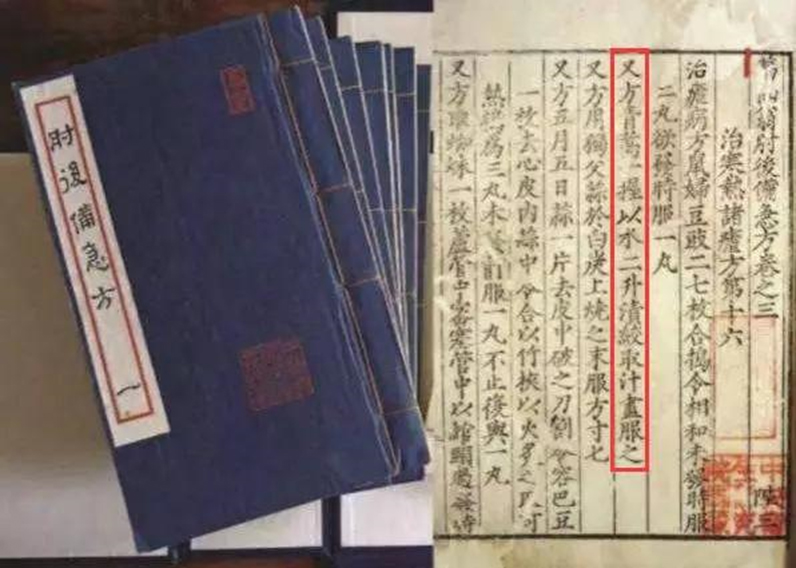 肘後備急方
一
葛仙翁肘後備急方卷之三
治寒熱諸瘧方第十六
治瘧病方鼠婦豆豉二七枚合搗令相和未發時服
二丸欲發時服一丸
又方青蒿一握以水二升漬絞取汁盡服之
又方用獨父蒜於白炭上燒之末服方寸七
又方五月五日蒜一片去皮中破之刀割令容巴豆
一枚去心皮內蒜中令合以竹挾以火炙之取可
熱搗為三丸未發前服一丸不止復與一丸
又方取蜘蛛一枚蘆管中密塞管中以綰頸過發時